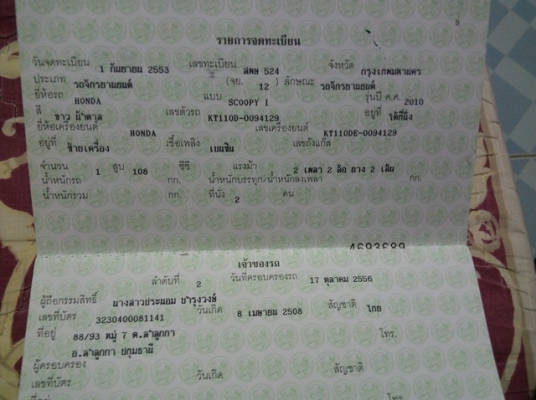 รายการจดทะเบียน
วันจดทะเบียน 1 กันยายน 2553 เลขทะเบียน 524 จังหวัด กรุงเทพมหานคร
ประเภท รถจักรยานยนต์ (จย. 12 ) ลักษณะ รถจักรยานยนต์
ยี่ห้อรถ HONDA แบบ SCOOPY I รุ่นปี ค.ศ. 2010
สี ขาว น้ำตาล เลขตัวรถ KT110D-0094129 อยู่ที่ ใต้ที่นั่ง
ยี่ห้อเครื่องยนต์ HONDA เลขเครื่องยนต์ KT110DE-0094129
อยู่ที่ ซ้ายเครื่อง เชื้อเพลิง เบนซิน เลขถังแก๊ส
จำนวน 1 สูบ 108 ซีซี แรงม้า 2 เพลา 2 ล้อ ยาง 2 เส้น
น้ำหนักรถ กก. น้ำหนักบรรทุก/น้ำหนักลงเพลา กก.
น้ำหนักรวม กก. ที่นั่ง 2 คน
4693689
เจ้าของรถ
ลำดับที่ 2 วันที่ครอบครองรถ 17 ตุลาคม 2556
ผู้ถือกรรมสิทธิ์ นางสาวประนอม บำรุงวงษ์
เลขที่บัตร 3230400081141 วันเกิด 8 เมษายน 2508 สัญชาติ ไทย
ที่อยู่ 88/93 หมู่ 7 ต.ลำลูกกา โทร.
อ.ลำลูกกา ปทุมธานี
ผู้ครอบครอง
เลขที่บัตร วันเกิด สัญชาติ
ที่อยู่ โทร.